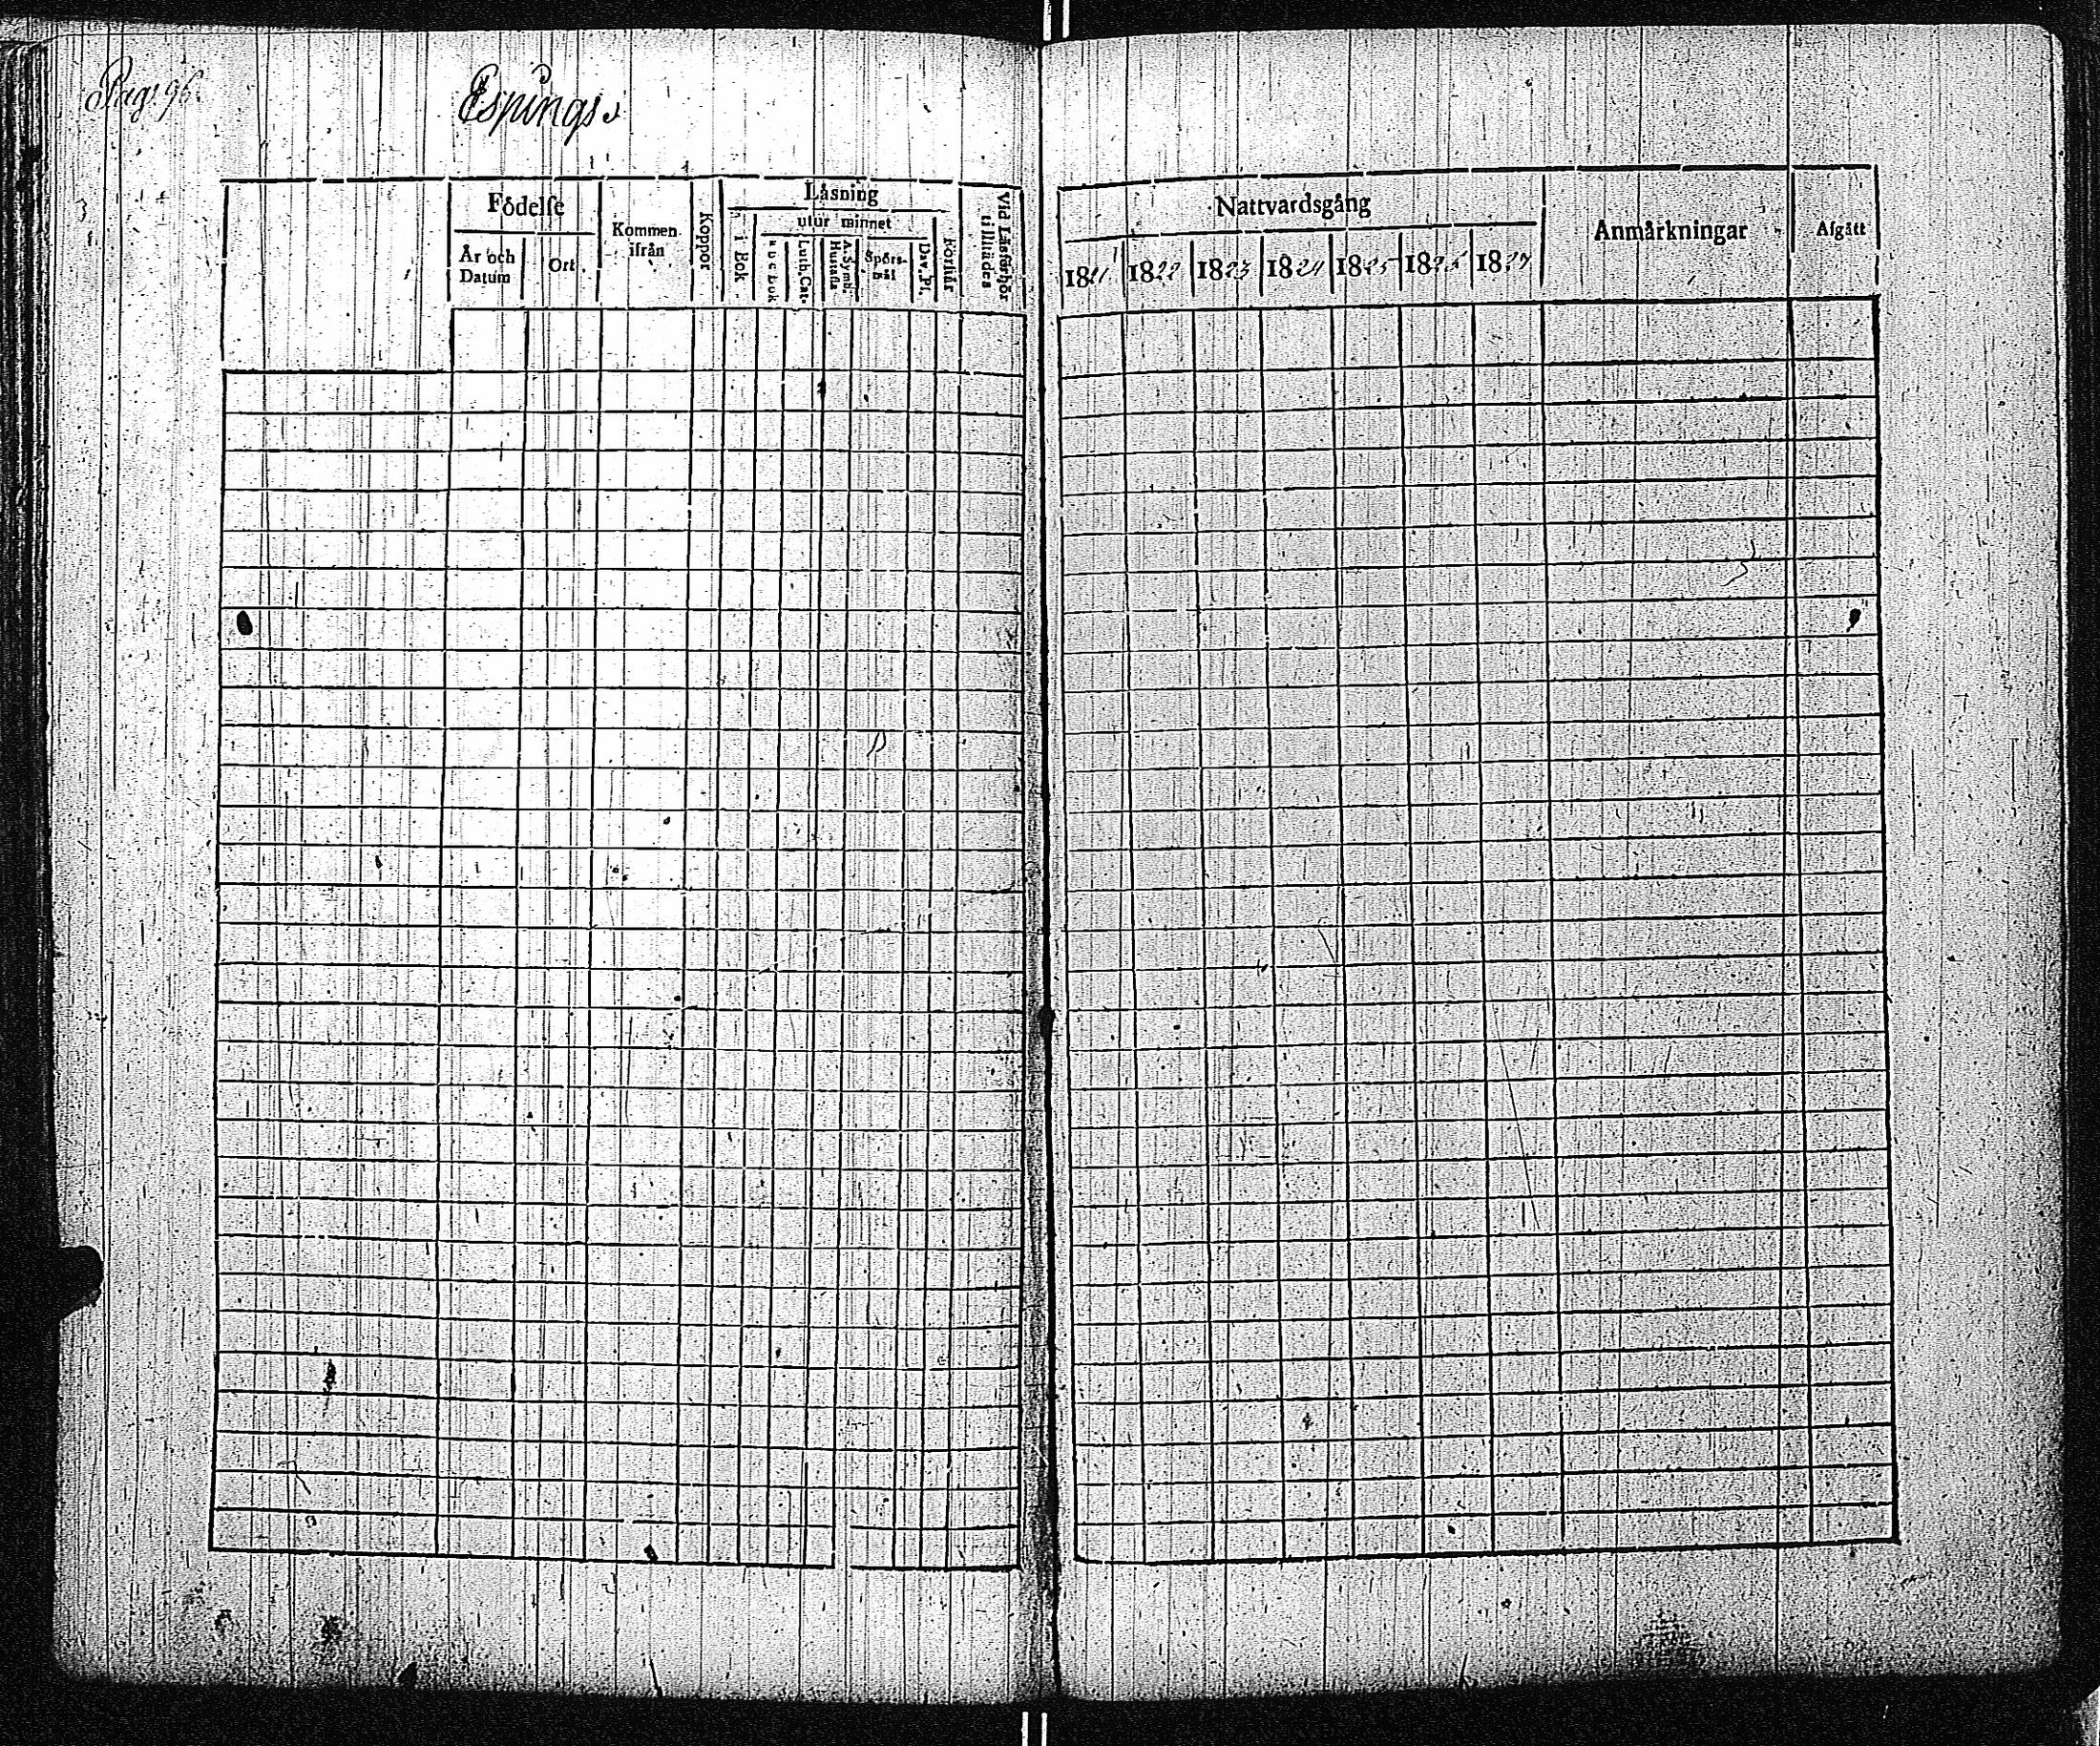 Pag. 96.
Espings
Födelse
År och Datum
Ort
Kommen ifrån
Koppor
Läsning
i Bok
utur minnet
a b c bok
Luth. Cat.
A. Symb. Hustafla
Spörsmål
Dav. Ps.
Förstår
Vid Läsförhör tillstädes
Nattvardsgång
1821 1822 1823 1824 1825 1826 1827
Anmärkningar
Afgått